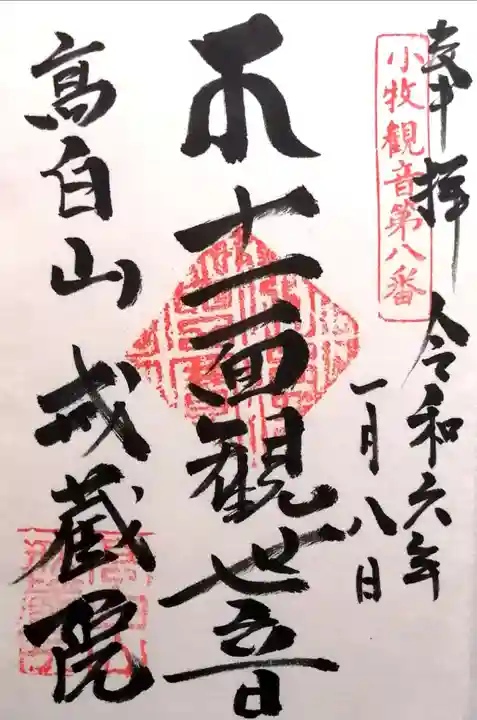 奉拝
小牧観音第八番
令和六年
一月八日
十一面観世音
高白山 戒蔵院